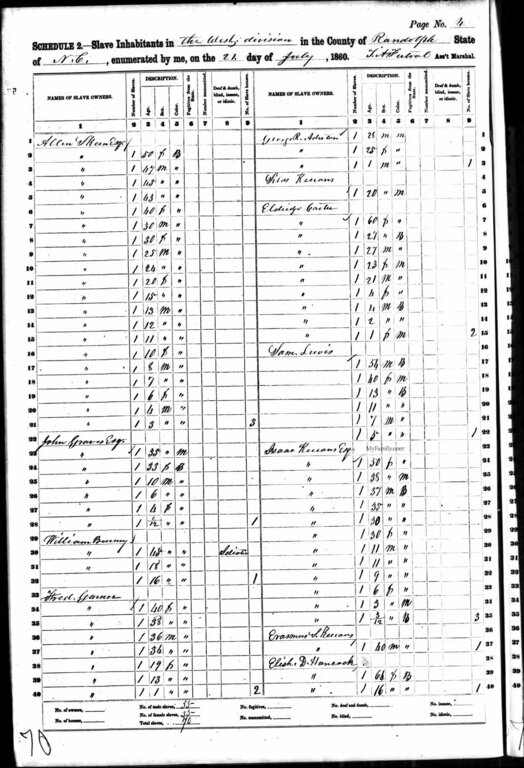 Page No. 4
SCHEDULE 2.—Slave Inhabitants in the West division in the County of Randolph State
of N.C., enumerated by me, on the day of July, 1860. Ass't Marshal.
DESCRIPTION. DESCRIPTION.
NAMES OF SLAVE OWNERS. Number of Slaves. Age. Sex. Color. Fugitives from the State. Number manumitted. Deaf & dumb, blind, insane, or idiotic. No. of Slave houses. NAMES OF SLAVE OWNERS. Number of Slaves. Age. Sex. Color. Fugitives from the State. Number manumitted. Deaf & dumb, blind, insane, or idiotic. No. of Slave houses.
1 2 3 4 5 6 7 8 9 1 2 3 4 5 6 7 8 9
1 Allen Skeen Esq 1 28 m m 1
2 " 1 50 f B " 1 25 f " 2
3 " 1 47 m " " 1 1 m " 1 3
4 " 1 45 " " 4
5 " 1 43 " " 1 20 " m 5
6 " 1 40 f " 6
7 " 1 30 m " " 1 60 f " 7
8 " 1 30 f " " 1 27 " B 8
9 " 1 25 m " " 1 27 m " 9
10 " 1 24 " " " 1 23 f m 10
11 " 1 20 f " " 1 21 m " 11
12 " 1 15 " " " 1 4 f " 12
13 " 1 13 m " " 1 4 m B 13
14 " 1 12 " " " 1 2 " " 14
15 " 1 11 " " " 1 1 f m 2 15
16 " 1 10 f " Sam. Lewis 16
17 " 1 8 m " 1 54 m B 17
18 " 1 7 " " 1 40 f m 18
19 " 1 6 f " 1 13 " B 19
20 " 1 4 m " 1 11 " " 20
21 " 1 3 " " 3 1 7 m " 21
22 John Graves Esq 1 5 " " 1 22
23 " 1 35 " m Isaac Esq 23
MyFamily.com
24 " 1 33 f B " 1 50 f " 24
25 " 1 10 m " " 1 38 " m 25
26 " 1 6 " " " 1 37 m B 26
27 " 1 4 f " " 1 35 " " 27
28 " 1 " " 1 " 1 30 " " 28
29 William Burney " 1 30 f " 29
30 " 1 48 " " Idiotic " 1 11 m " 30
31 " 1 18 " " " 1 11 " " 31
32 " 1 16 " " 1 " 1 9 " " 32
33 Fred. Garner " 1 6 f " 33
34 " 1 40 f " " 1 3 " m 34
35 " 1 38 " " " 1 3/12 " B 3 35
36 " 1 36 m " Erasmus S. 36
37 " 1 34 " " " 1 40 m " 1 37
38 " 1 19 f " Elisha D. Hancock 38
39 " 1 13 " " " 1 64 f B 39
40 " 1 1 " " 2 " 1 16 " " 1 40
No. of owners, No. of male slaves, 35 No. fugitives, No. of deaf and dumb, No. insane,
No. of houses, No. of female slaves, 35 No. manumitted, No. blind, No. idiotic,
Total slaves, 70
70